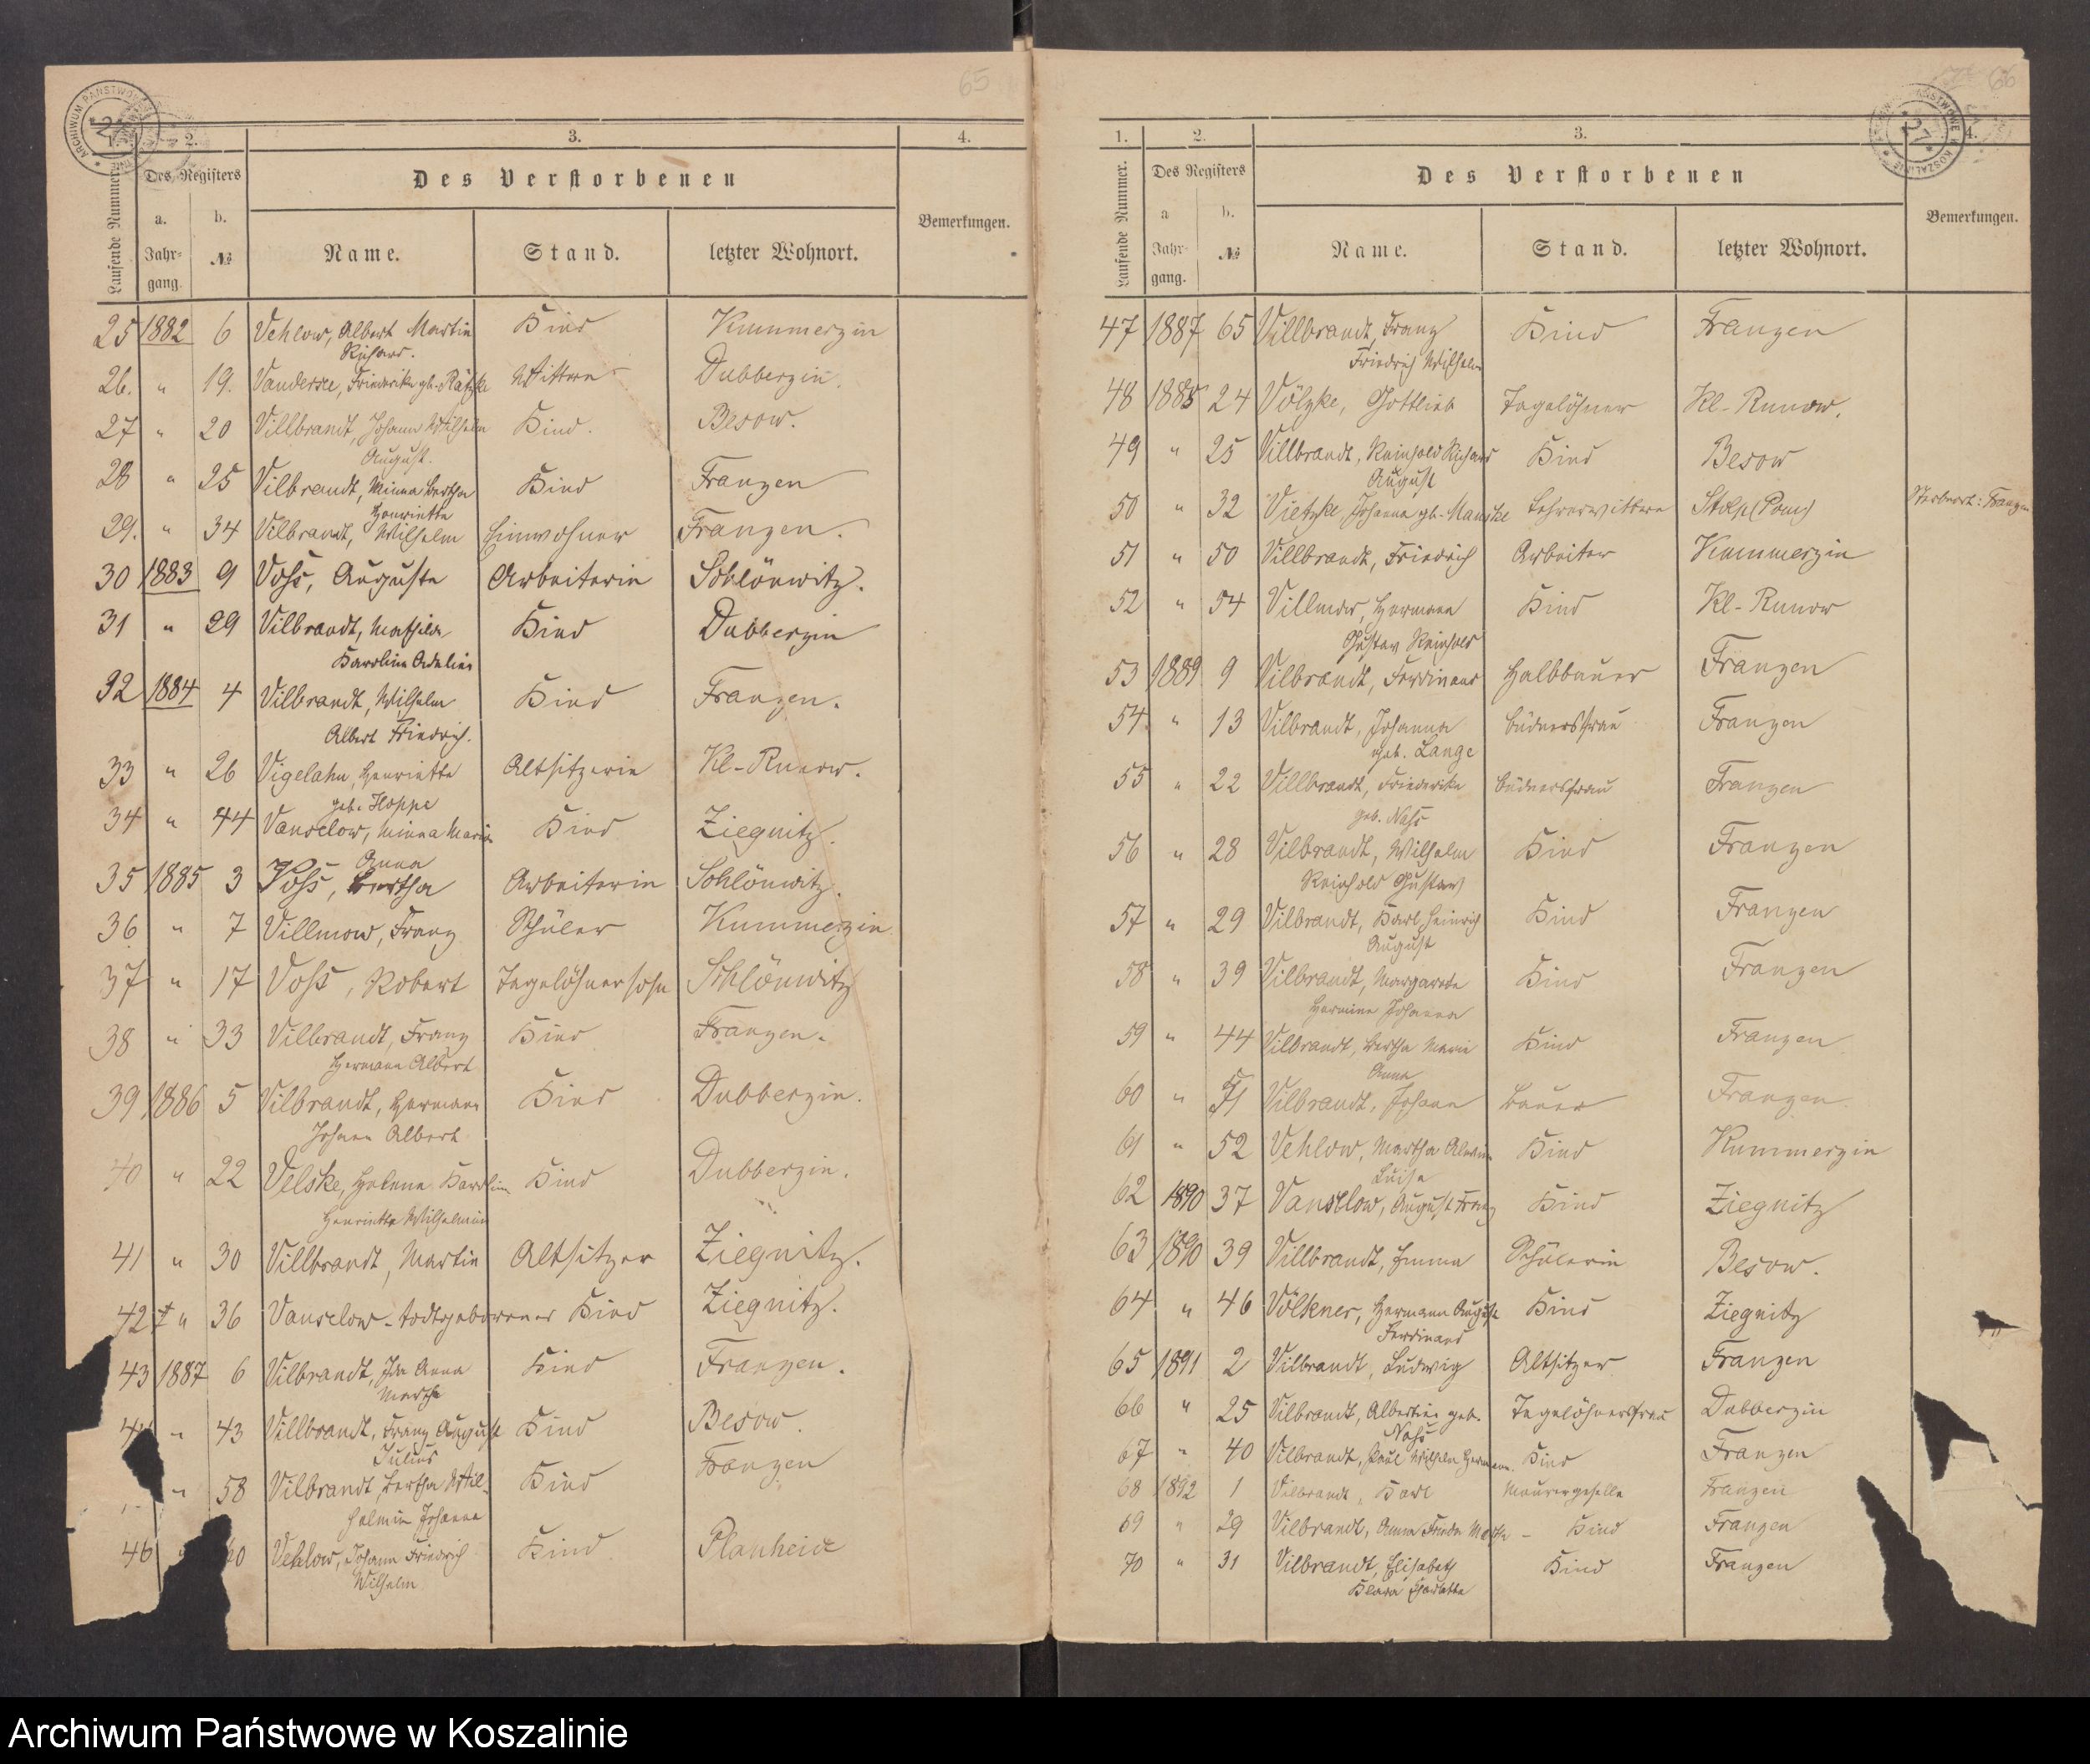 65
ARCHIWUM PAŃSTWOWE
1. 2. 3. 4.
Laufende Nummer. Des Registers Des Verstorbenen Bemerkungen.
a. Jahrgang. b. № Name. Stand. letzter Wohnort.
25 1882 6 Vehlow, Albert Martin Kind Kummerzin
Richard.
26. " 19. Vandersee, Friederike gb. Rätzke Wittwe Dubberzin.
27 " 20 Villbrandt, Johann Wilhelm Kind. Besow.
August.
28 " 25 Vilbrandt, Minna Bertha Kind Franzen
Henriette
29. " 34 Vilbrandt, Wilhelm Einwohner Franzen.
30 1883 9 Voß, Auguste Arbeiterin Schlönwitz.
31 " 29 Vilbrandt, Mathilde Kind Dubberzin
Karoline Adeline
32 1884 4 Vilbrandt, Wilhelm Kind Franzen.
Albert Friedrich.
33 " 26 Vigelahn, Henriette Altsitzerin Kl-Runow.
geb. Hoppe
34 " 44 Vanselow, Minna Marie Kind Ziegnitz.
Anna
35 1885 3 Voß, Bertha Arbeiterin Schlönwitz.
36 " 7 Villmow, Franz Schüler Kummerzin
37 " 17 Voß, Robert Tagelöhnersohn Schlönwitz
38 " 33 Vilbrandt, Franz Kind Franzen.
Hermann Albert
39 1886 5 Vilbrandt, Hermann Kind Dubberzin.
Johann Albert
40 " 22 Velske, Helene Karoline Kind Dubberzin.
Henriette Wilhelmine
41 " 30 Villbrandt, Martin Altsitzer Ziegnitz.
42 † " 36 Vanselow - todtgeborenes Kind Ziegnitz.
43 1887 6 Vilbrandt, Ida Anna Kind Franzen.
Martha
" 43 Villbrandt, Franz August Kind Besow.
Julius
" 58 Vilbrandt, Bertha Wil- Kind Franzen
helmine Johanna
46 60 Vehlow, Johann Friedrich Kind Planheide
Wilhelm
66
ARCHIWUM PAŃSTWOWE W KOSZALINIE
27
1. 2. 3. 4.
Laufende Nummer. Des Registers Des Verstorbenen Bemerkungen.
a Jahrgang. b. № Name. Stand. letzter Wohnort.
47 1887 65 Villbrandt, Franz Kind Franzen
Friedrich Wilhelm
48 1888 24 Völzke, Gottlieb Tagelöhner Kl-Runow.
49 " 25 Villbrandt, Reinhold Richard Kind Besow
August
50 " 32 Vietzke Johanna gb. Manske Lehrerwittwe Stolp (Pom) Sterbeort: Franzen
51 " 50 Villbrandt, Friedrich Arbeiter Kummerzin
52 " 54 Villmow, Hermann Kind Kl-Runow
Gustav Reinhold
53 1889 9 Vilbrandt, Ferdinand Halbbauer Franzen
54 " 13 Vilbrandt, Johanna Büdnersfrau Franzen
geb. Lange
55 " 22 Villbrandt, Friederike Büdnersfrau Franzen
geb. Naß
56 " 28 Vilbrandt, Wilhelm Kind Franzen
Reinhold Gustav
57 " 29 Vilbrandt, Karl Heinrich Kind Franzen
August
58 " 39 Vilbrandt, Margarete Kind Franzen
Hermine Johanna
59 " 44 Vilbrandt, Bertha Marie Kind Franzen
Anna
60 " 51 Vilbrandt, Johann Bauer Franzen.
61 " 52 Vehlow, Martha Alwine Kind Kummerzin
Luise
62 1890 37 Vanselow, August Franz Kind Ziegnitz
63 1890 39 Villbrandt, Emma Schülerin Besow.
64 " 46 Völkner, Hermann August Kind Ziegnitz
Ferdinand
65 1891 2 Vilbrandt, Ludwig Altsitzer Franzen
66 " 25 Vilbrandt, Albertine geb. Tagelöhnersfrau Dubberzin
Naß
67 " 40 Vilbrandt, Paul Wilhelm Hermann. Kind Franzen
68 1892 1 Vilbrandt, Karl Maurergeselle Franzen
69 " 29 Vilbrandt, Anna Frieda Martha - Kind Franzen
70 " 31 Vilbrandt, Elisabeth Kind Franzen
Klara Charlotte
Archiwum Państwowe w Koszalinie